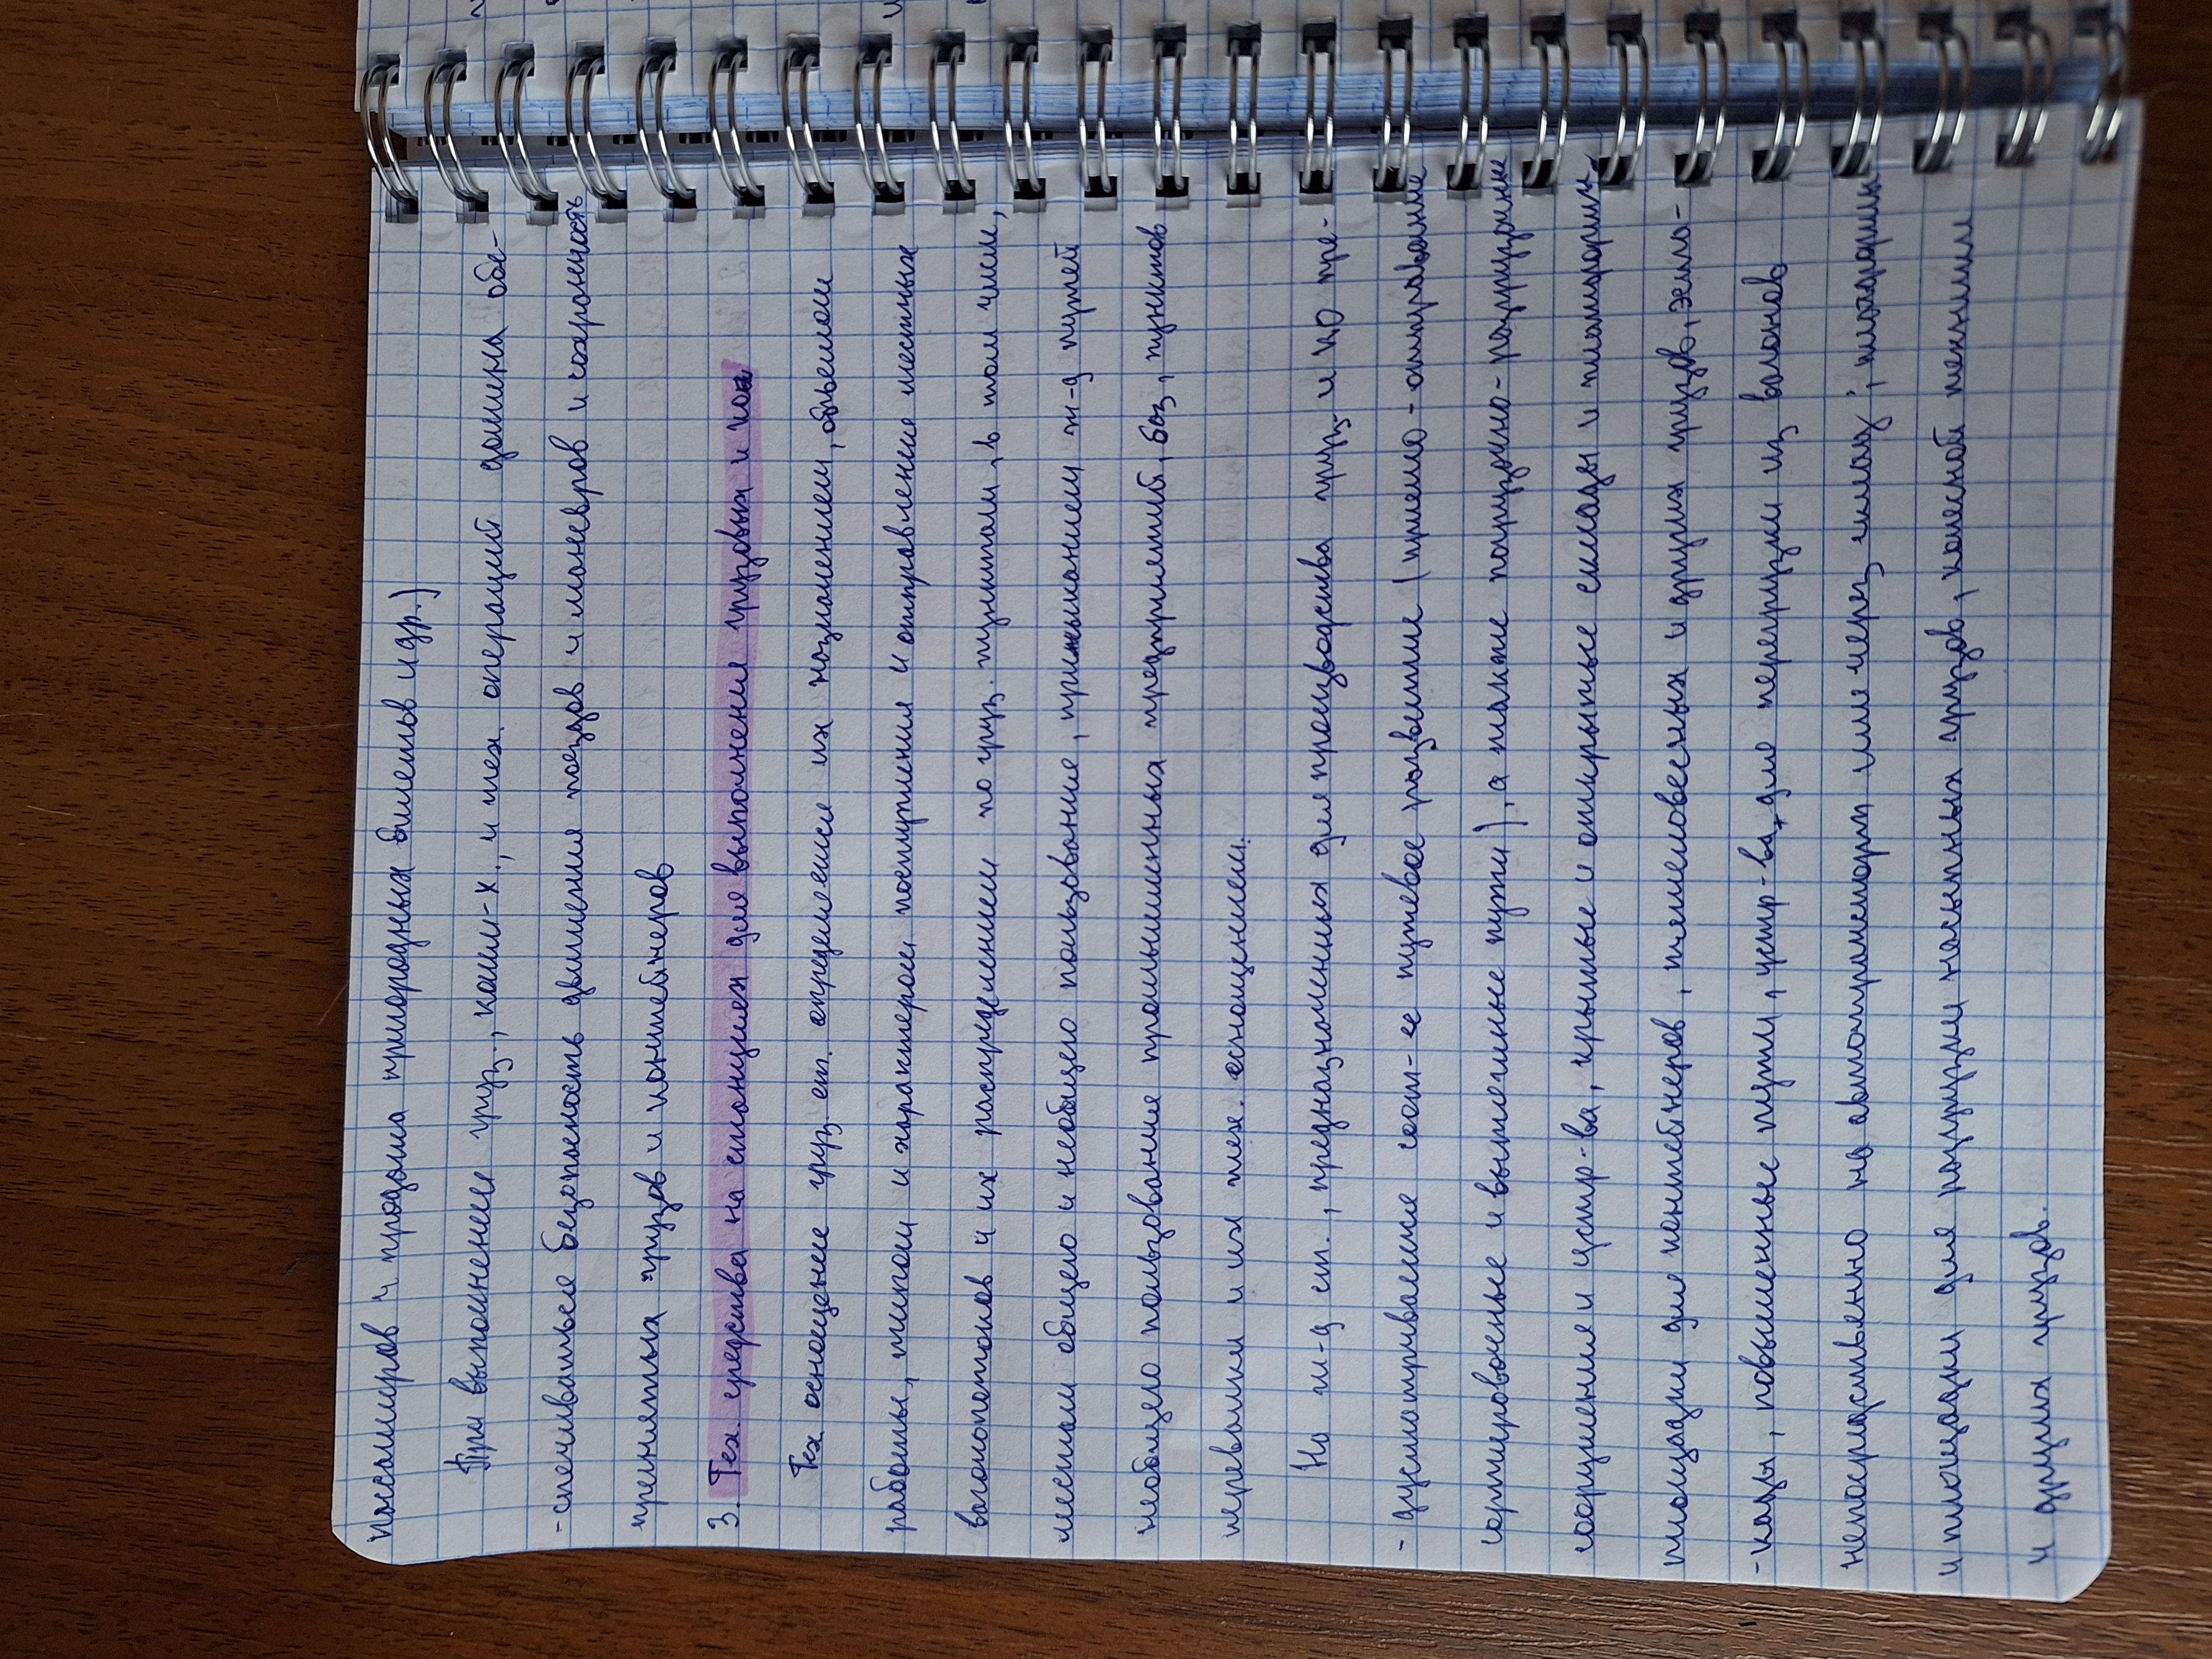 пассажиров и продажа пригородных билетов и др.)
При выполнении груз., комм-х., и тех. операций должна обе-
-спечиваться безопасность движения поездов и маневров и сохранность
принятых грузов и контейнеров
3. Тех. средства на станциях для выполнения грузовых и ком
Тех. оснащение груз. ст. определяется их назначением, объемом
работы, типом и характером поступления и отправление местных
вагонопотоков и их распределением по груз. пунктам, в том числе,
местам общего и необщего пользование, примыканием ж-д путей
необщего пользование промышленных предприятий, баз, пунктов
перевалки и их тех. оснащением.
На ж-д ст., предназначенных для производства груз. и КО пре-
- дусматривается соот-ее путевое развитие (приемо-отправочные
сортировочные и вытяжные пути), а также погрузочно-разгрузочные
сооружения и устр-ва, крытые и открытые склады и платформы,
площадки для контейнеров, тяжеловесных и других грузов, эста-
-кады, повышенные пути, устр-ва для перегрузки из вагонов
непосредственно на автотранспорт или через склад; площадки
и площадки для погрузки насыпных грузов, колесной техники
и других грузов.